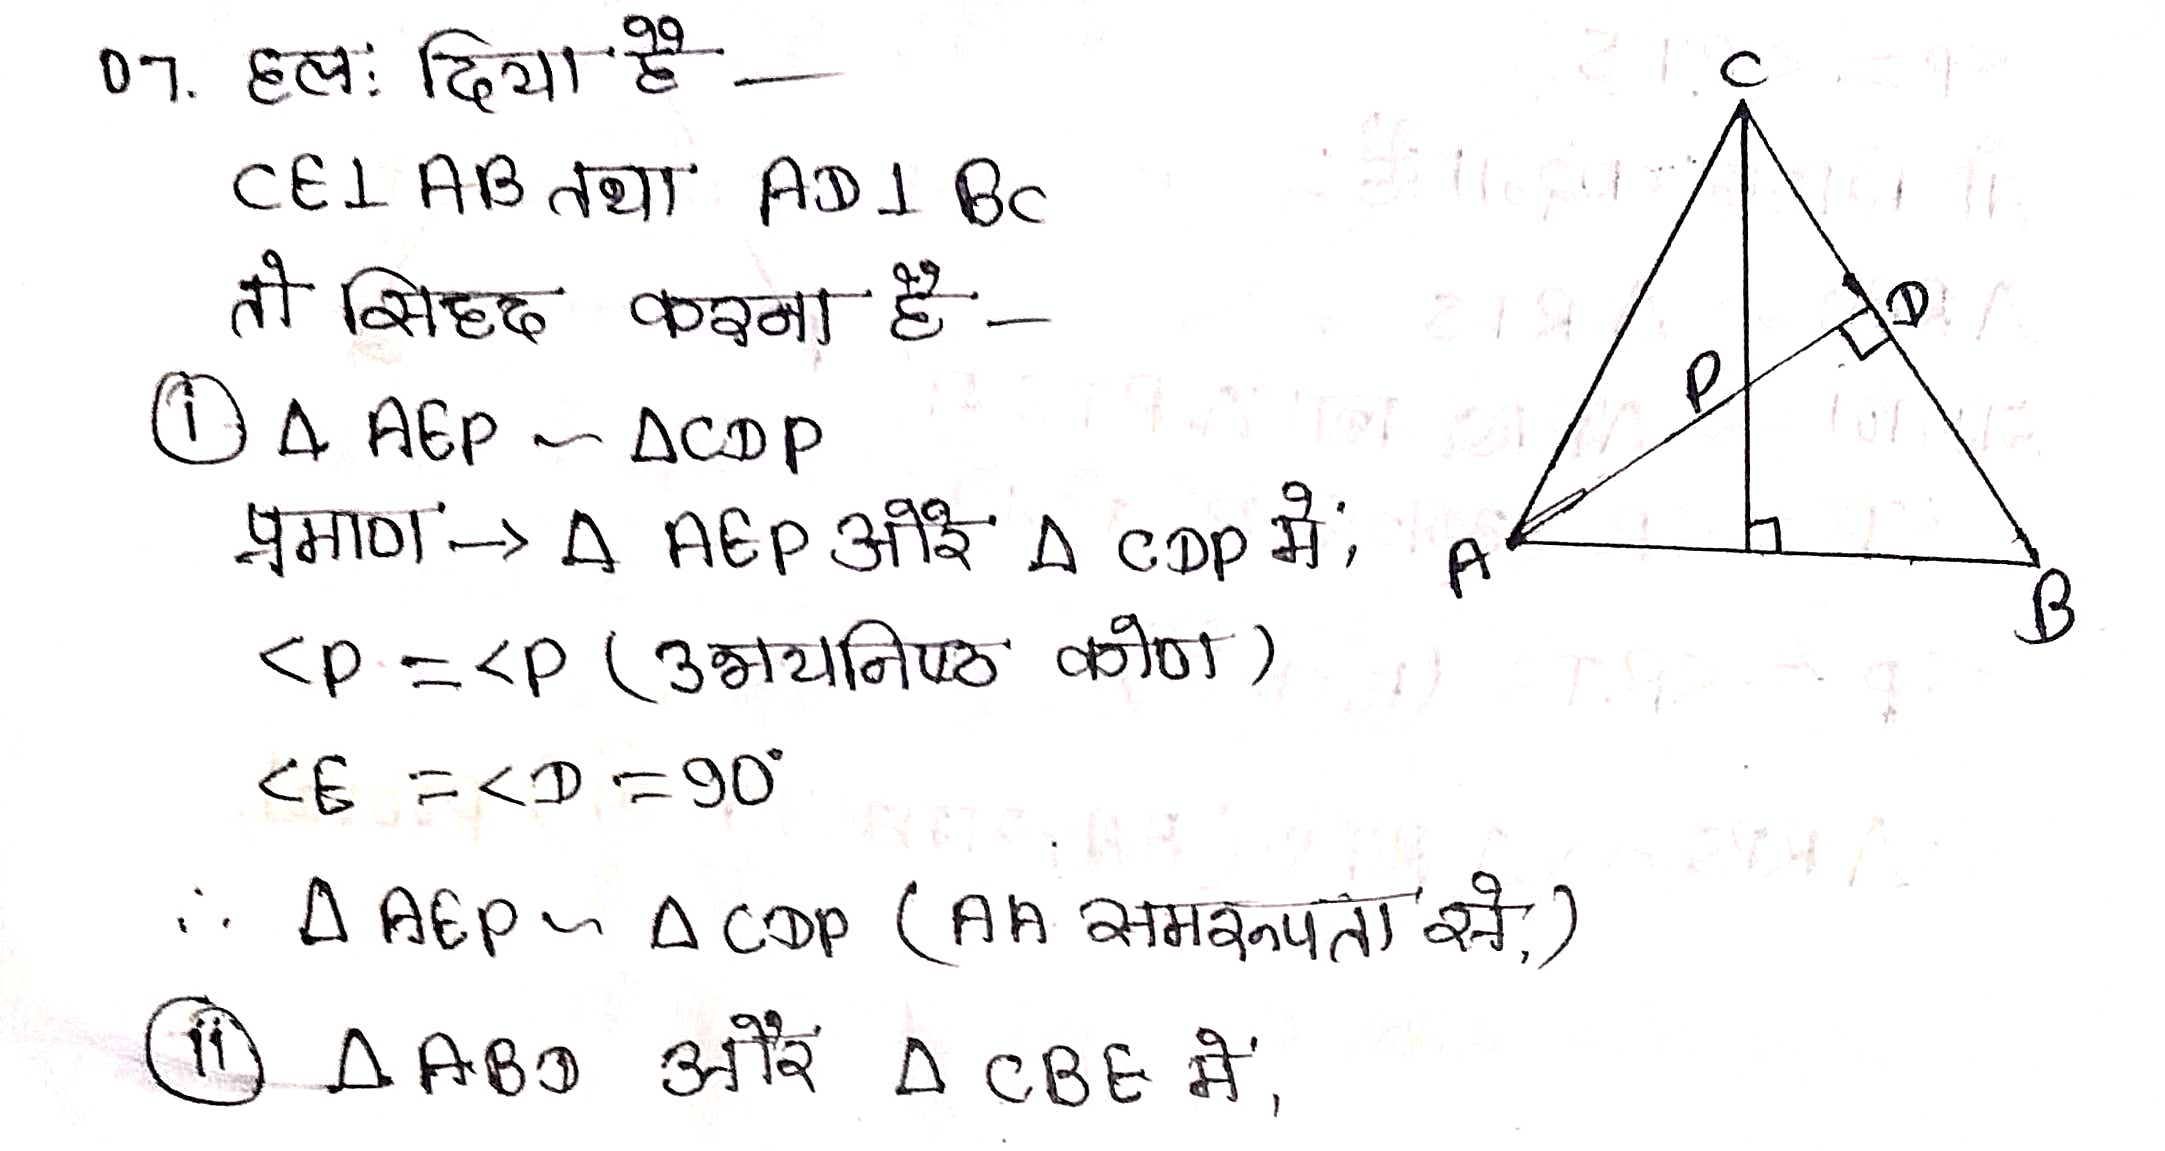 07. हल: दिया है —
CE⊥ AB तथा AD⊥ BC
तो सिद्द करना है —
(i) Δ AEP ~ ΔCDP
प्रमाण → Δ AEP और Δ CDP में,
<P = <P (उभयनिष्ठ कोण)
<E = <D = 90°
∴ Δ AEP ~ Δ CDP (AA समरूपता से,)
(ii) Δ ABD और Δ CBE में,
C
D
P
A
B